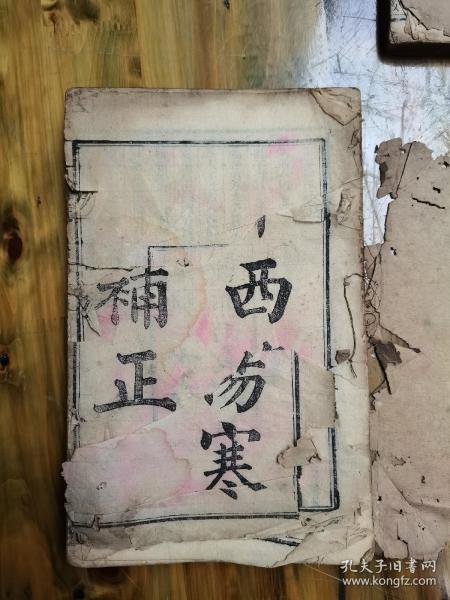 西伤寒
補正
孔夫子旧书网
www.kongfz.com